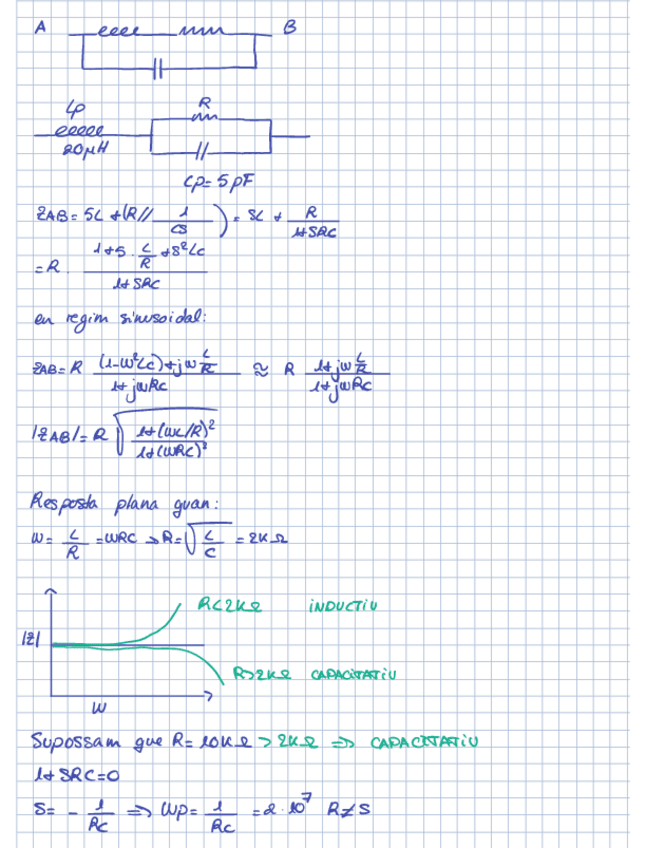 A B
Lp R
20μH
Cp= 5pF
ZAB= SL + (R// 1/CS) = SL + R/1+SRC
= R · 1+S · L/R + S²LC / 1+SRC
en regim sinusoidal:
ZAB= R (1-W²LC)+jW L/R / 1+jWRC ≈ R 1+jW L/R / 1+jWRC
|ZAB|= R √ 1+(WL/R)² / 1+(WRC)²
Resposta plana quan:
W= L/R =WRC => R=√L/C = 2KΩ
R<2KΩ INDUCTIU
|Z|
R>2KΩ CAPACITATIU
W
Supossam que R= 10KΩ > 2KΩ => CAPACITATIU
1+SRC=0
S= - 1/RC => Wp= 1/RC =2·10⁷